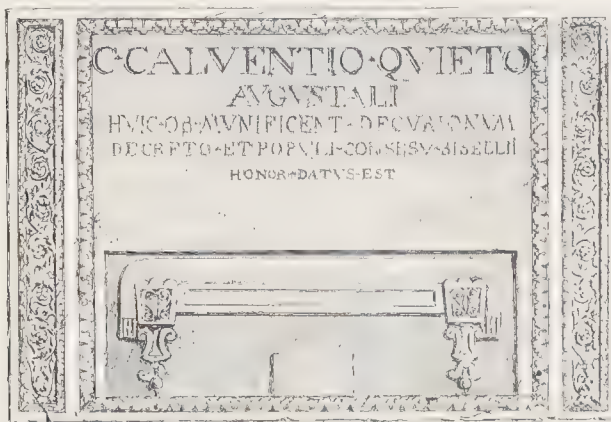 C·CALVENTIO·QVIETO
AVGVSTALI
HVIC·OB·MVNIFICENT·DECVRIONVM
DECRETO·ET·POPVLI·CONSESV·BISELLII
HONOR·DATVS·EST